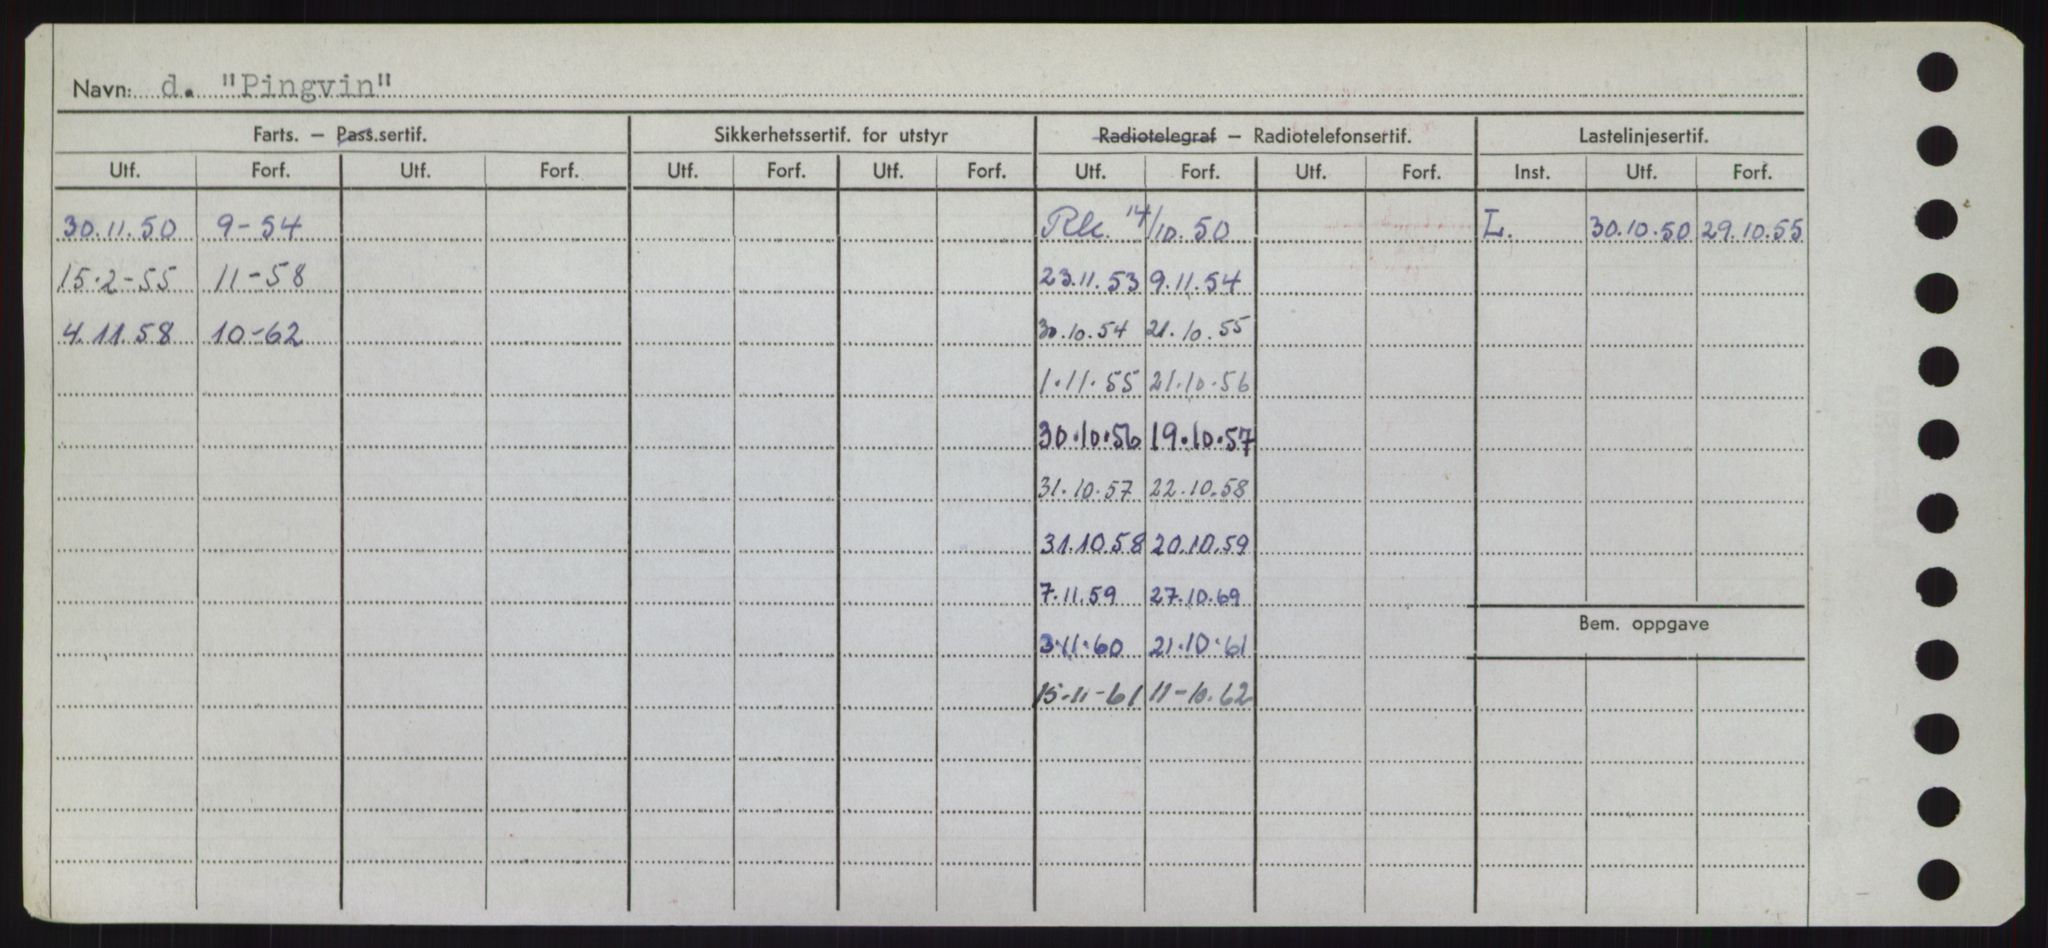 Navn: d. "Pingvin"
Farts. — Pass.sertif. Sikkerhetssertif. for utstyr Radiotelegraf — Radiotelefonsertif. Lastelinjesertif.
Utf. Forf. Utf. Forf. Utf. Forf. Utf. Forf. Utf. Forf. Utf. Forf. Inst. Utf. Forf.
30.11.50 9-54 14/10.50 L. 30.10.50 29.10.55
15.2-55 11-58 23.11.53 9.11.54
4.11.58 10-62 30.10.54 21.10.55
1.11.55 21.10.56
30.10.56 19.10.57
31.10.57 22.10.58
31.10.58 20.10.59
7.11.59 27.10.69
Bem. oppgave
3.11.60 21.10.61
15-11-61 11-10.62